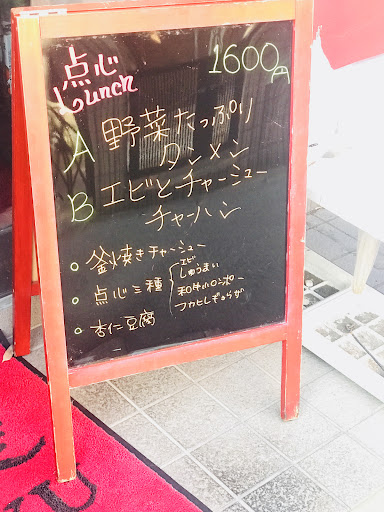 点心
Lunch
1600円
A 野菜たっぷり
タンメン
B エビとチャーシュー
チャーハン
○ 釜焼きチャーシュー
○ 点心三種
エビしゅうまい
和牛小ロンポー
フカヒレぎょうざ
○ 杏仁豆腐